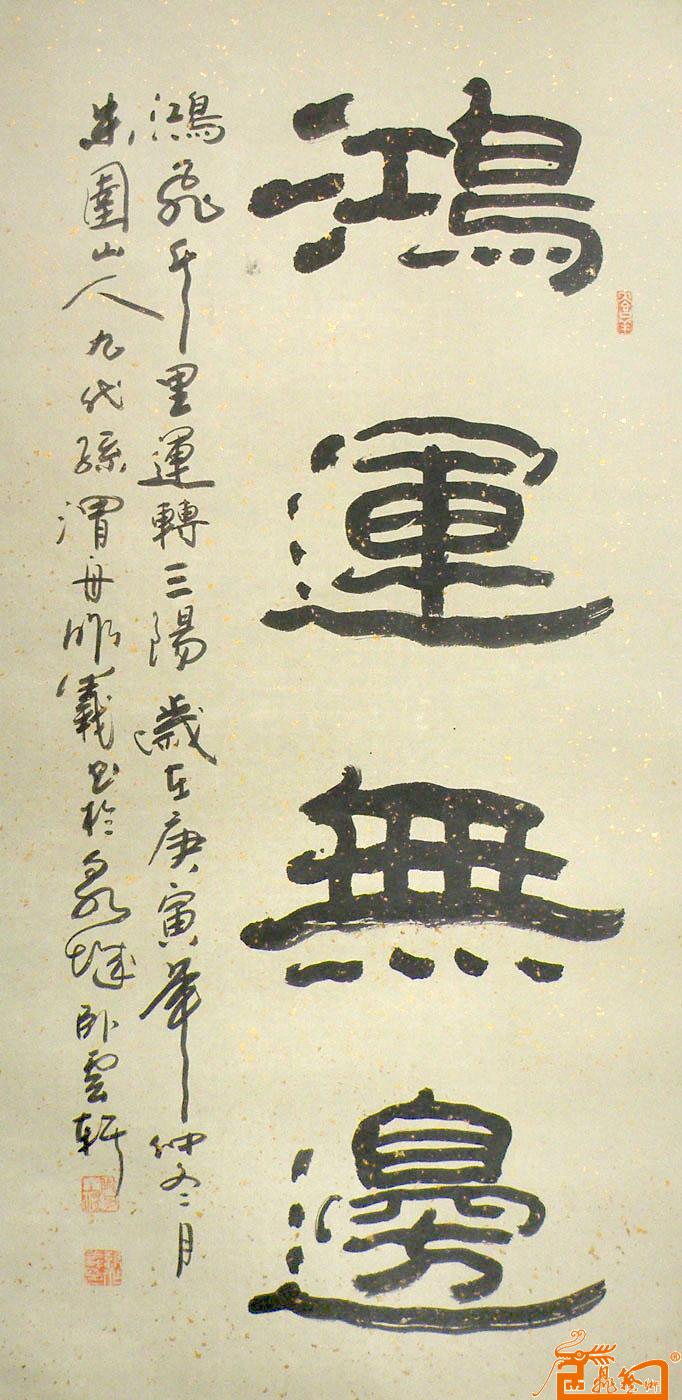 鴻運無邊
鴻飛千里運轉三陽歲在庚寅年仲冬二月
朱圍山人九代孫渭舟作義书於泉城卧雲軒